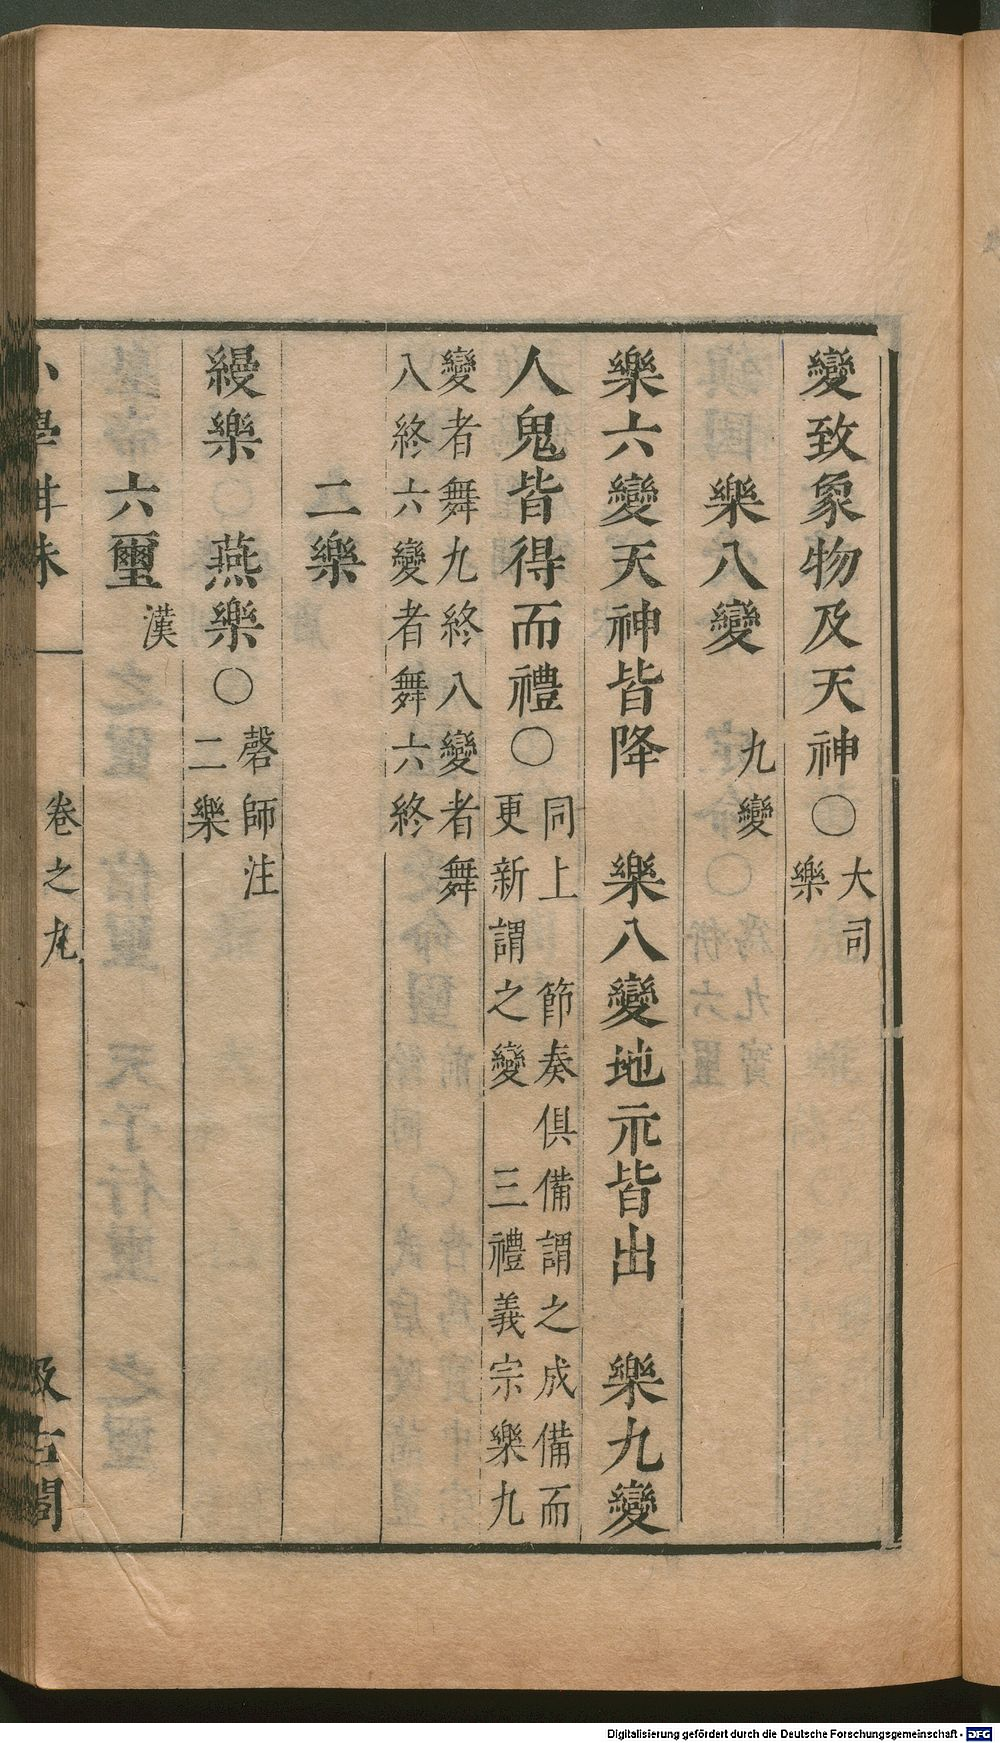 變致象物及天神〇大司樂
樂八變 九變
樂六變天神皆降 樂八變地示皆出 樂九變
人鬼皆得而禮〇同上 節奏俱備謂之成備而
更新謂之變 三禮義宗樂九
變者舞九終八變者舞
八終六變者舞六終
二樂
縵樂 燕樂〇磬師注
二樂
六璽漢
小學紺珠 卷之九 汲古閣
Digitalisierung gefördert durch die Deutsche Forschungsgemeinschaft - DFG